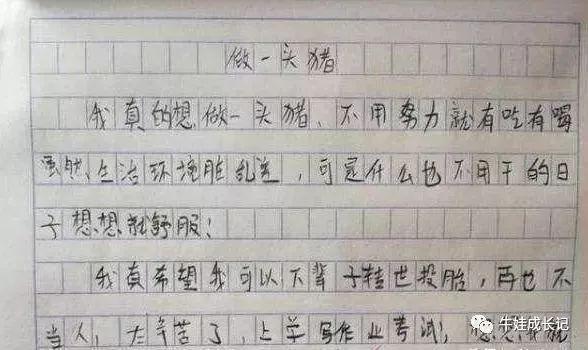 做一头猪
我真的想做一头猪、不用努力就有吃有喝
虽然、生活环境脏乱差，可是什么也不用干的日
子想想就舒服！
我真希望我可以下辈子转世投胎，再也不
当人，太辛苦了，上学写作业考试！想想我就
牛娃成长记